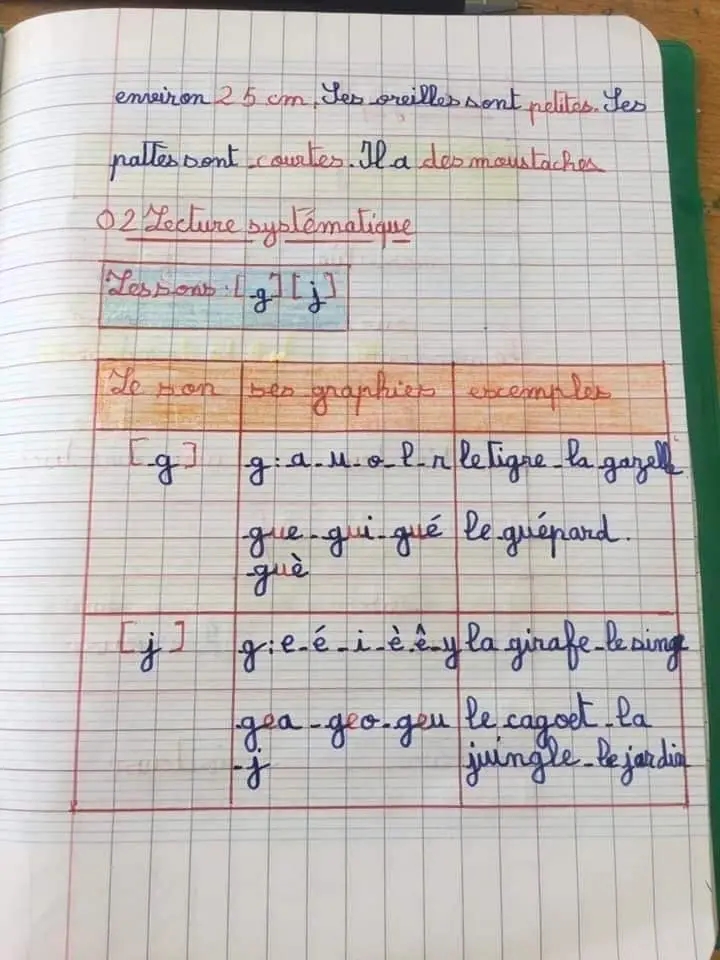 environ 25 cm. Ses oreilles sont petites. Ses
pattes sont courtes. Il a des moustaches
02 Lecture systématique
Les sons : [g] [j]
Le son ses graphies escemples
[g] g : a - u - o - l - r le tigre - la gazelle
gue - gui - gué le guépard.
guè
[j] g : e - é - i - è - ê - y la girafe - le singe
gea - geo - geu le cagoet - la
- j juingle - le jardin